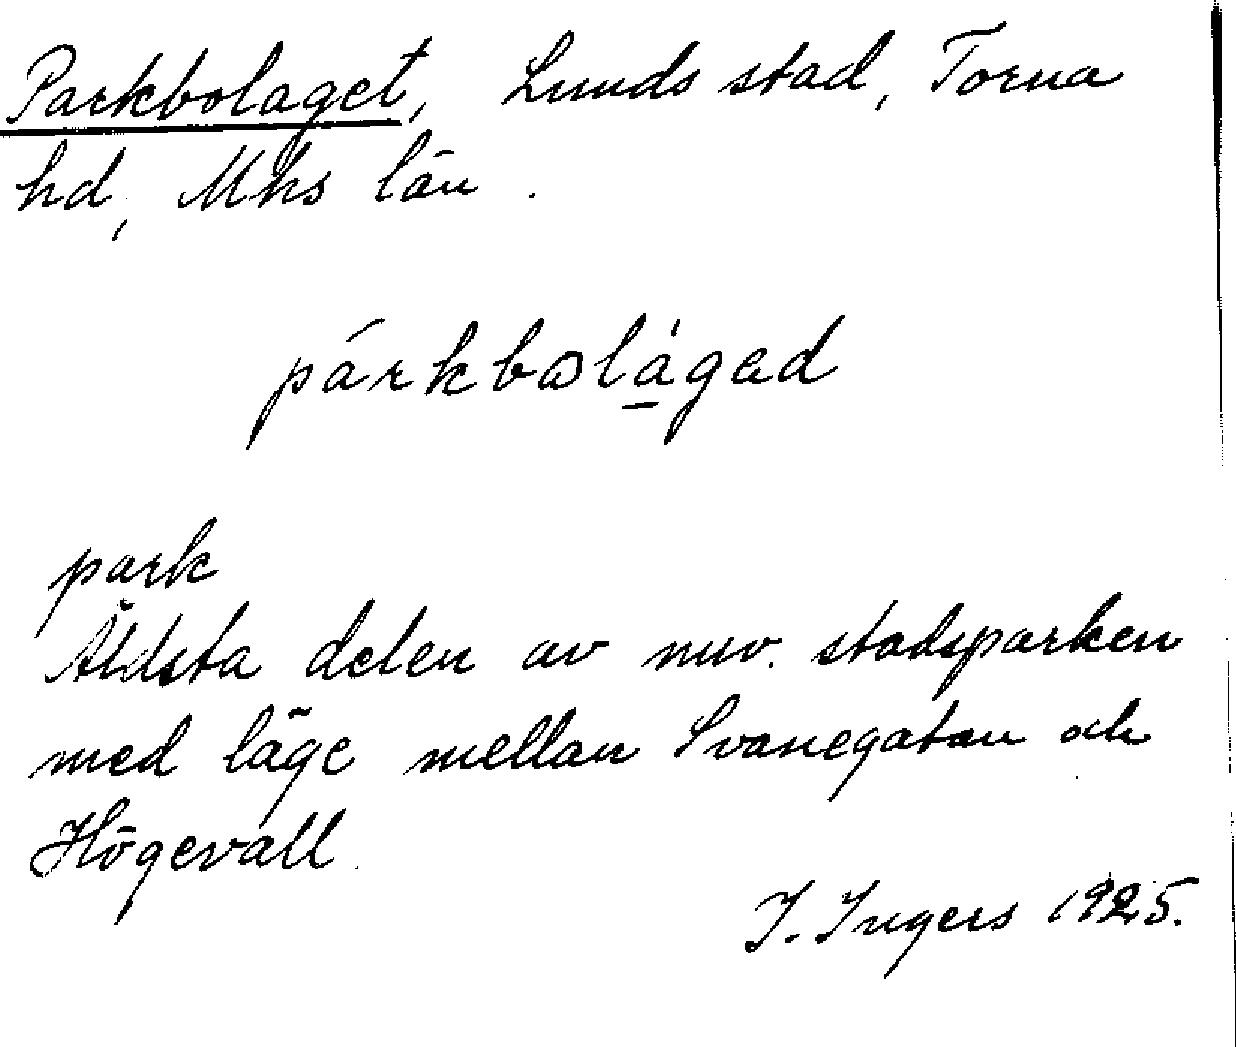 Parkbolaget, Lunds stad, Torna
hd, Mhs län.
párkbωlágad
park
Äldsta delen av nuv. stadsparken
med läge mellan Svanegatan och
Högevall.
I. Ingers 1925.